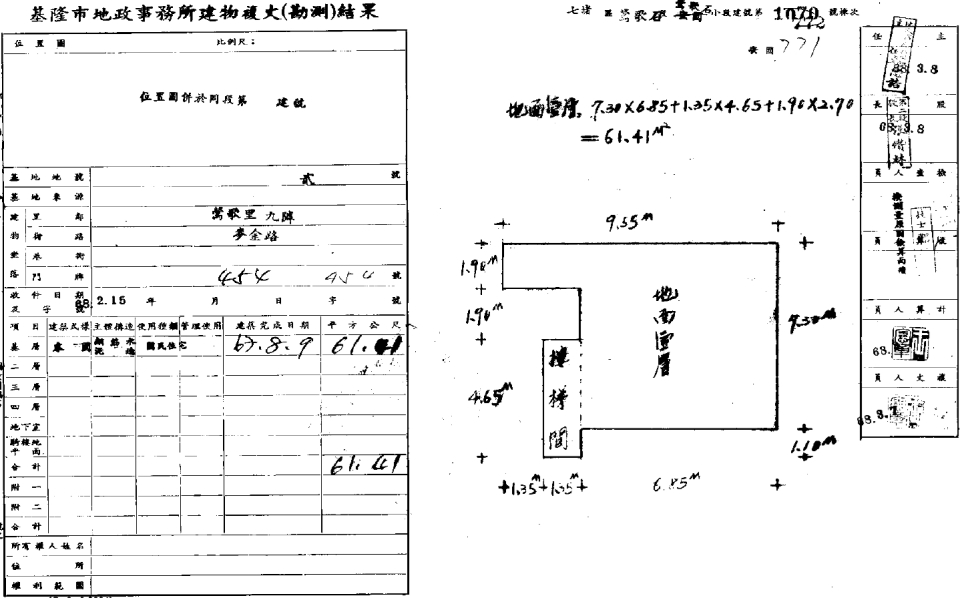 基隆市地政事務所建物複丈(勘測)結果
位置圖 比例尺:
位置圖併於同段第 建號
基地地號 貳 號
基地來源
建里鄰 鶯歌里九鄰
物街路 麥金路
坐巷衖
落門牌 454 454 號
收件日期及字號 68.2.15 年 月 日 字 號
項目 建築式樣 主體構造 使用種類 管理使用 建築完成日期 平方公尺
基層 本國 鋼筋水泥造 國民住宅 67.8.9 61.41
二層
三層
四層
地下室
騎樓地平面
合計 61.41
附一
附二
合計
所有權人姓名
住所
權利範圍
七堵區鶯歌石段 小段建號第 號棟次
771
地面壹層 7.30×6.85+1.35×4.65+1.90×2.70
=61.41M²
9.55M
1.90M
1.90M
4.65M
地面壹層
樓梯間
9.30M
1.10M
1.35M 1.35M 6.85M
主任
68.3.8
股長
68.3.8
檢查人員
核算員
計算人員
68.
複丈人員
68.3.